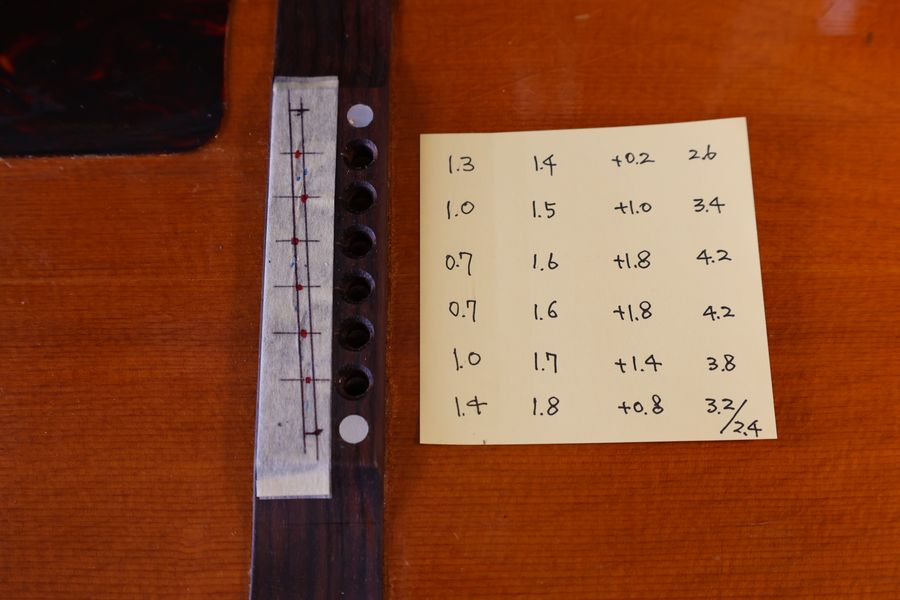 1.3 1.4 +0.2 2.6
1.0 1.5 +1.0 3.4
0.7 1.6 +1.8 4.2
0.7 1.6 +1.8 4.2
1.0 1.7 +1.4 3.8
1.4 1.8 +0.8 3.2/2.4